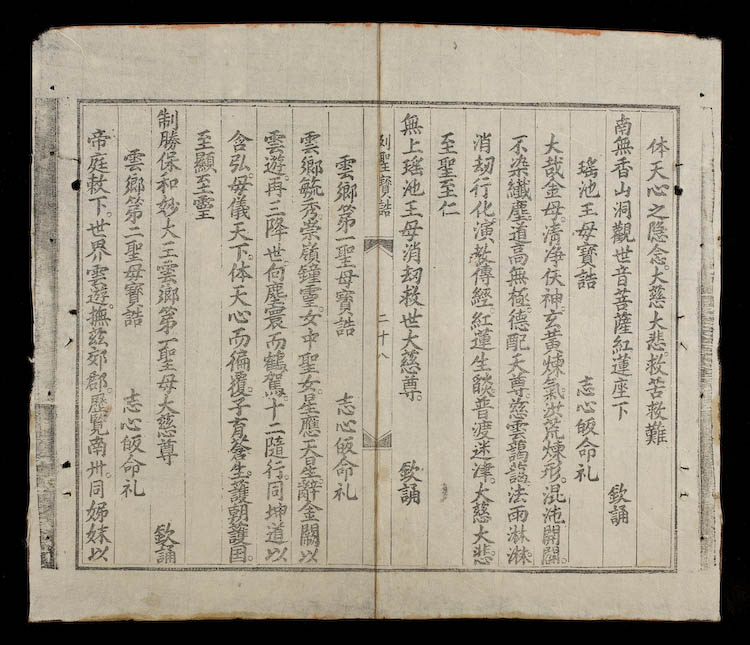 体天心之隐念。大慈大悲。救苦救難
南無香山洞觀世音菩薩紅蓮座下 欽誦
瑶池王母寳誥 志心皈命礼
大哉金母。清净佚神。玄黄煉氣。洪荒煉形。混沌開闢。
不染纎塵。道高無極。德配天尊。慈雲藹藹。法雨淋淋。
消刼行化。演教傳經。紅蓮生燄。普渡迷津。大慈大悲。
至聖至仁
無上瑶池王母消刼救世大慈尊。 欽誦
列聖寳誥 二十八
雲鄉第一聖母寳誥 志心皈命礼
雲鄉毓秀。崇嶺鐘霊。女中聖女。星應天星。辭金闕以
雲遊。再三降世。向塵寰而鶴駕。十二隨行。同坤道以
含弘。母儀天下。体天心而徧覆。子育含生。護朝護国。
至顯至霊
制勝保和妙大王雲鄉第一聖母大慈尊 欽誦
雲鄉第二聖母寳誥 志心皈命礼
帝庭敕下。世界雲遊。撫玆郊郡。歷覽南卅。同姊妹以